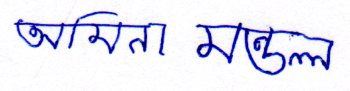 অমিতা মন্ডল